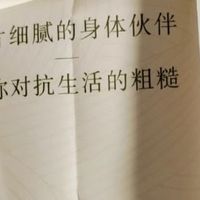 细腻的身体伙伴
你对抗生活的粗糙